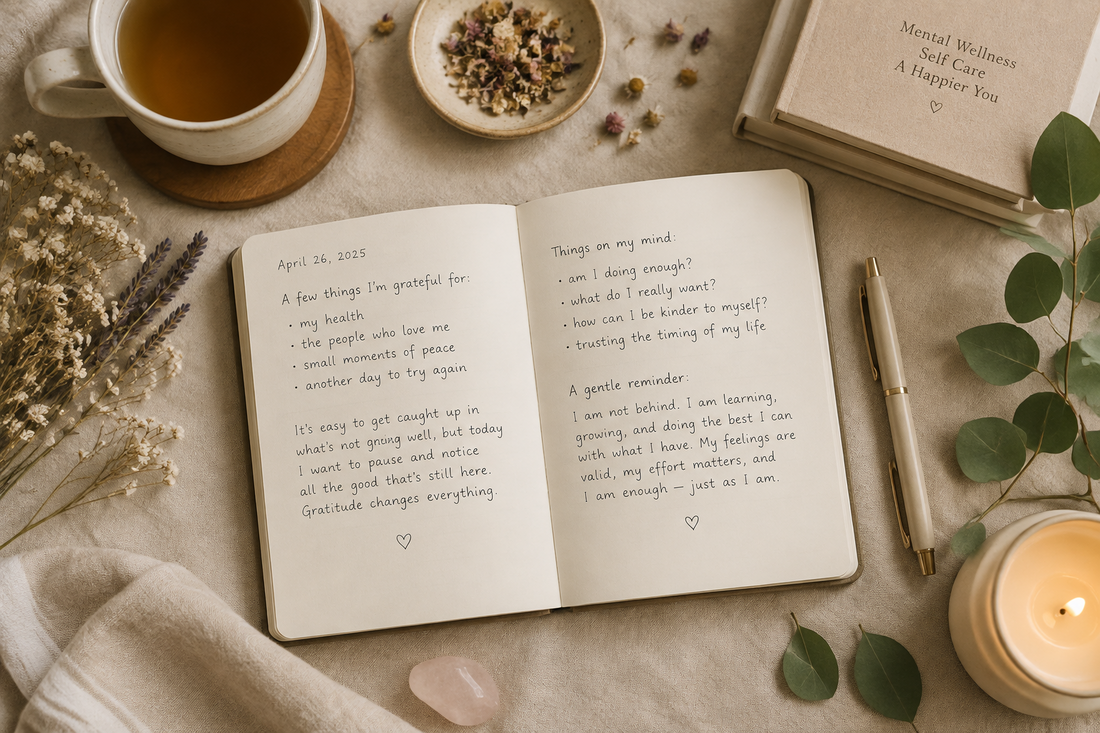 Mental Wellness
Self Care
A Happier You
April 26, 2025
A few things I'm grateful for:
• my health
• the people who love me
• small moments of peace
• another day to try again
It's easy to get caught up in
what's not well, but today
I want to pause and notice
all the good that's still here.
Gratitude changes everything.
Things on my mind:
• am I doing enough?
• what do I really want?
• how can I be kinder to myself?
• trusting the timing of my life
A gentle reminder:
I am not behind. I am learning,
growing, and doing the best I can
with what I have. My feelings are
valid, my effort matters, and
I am enough — just as I am.